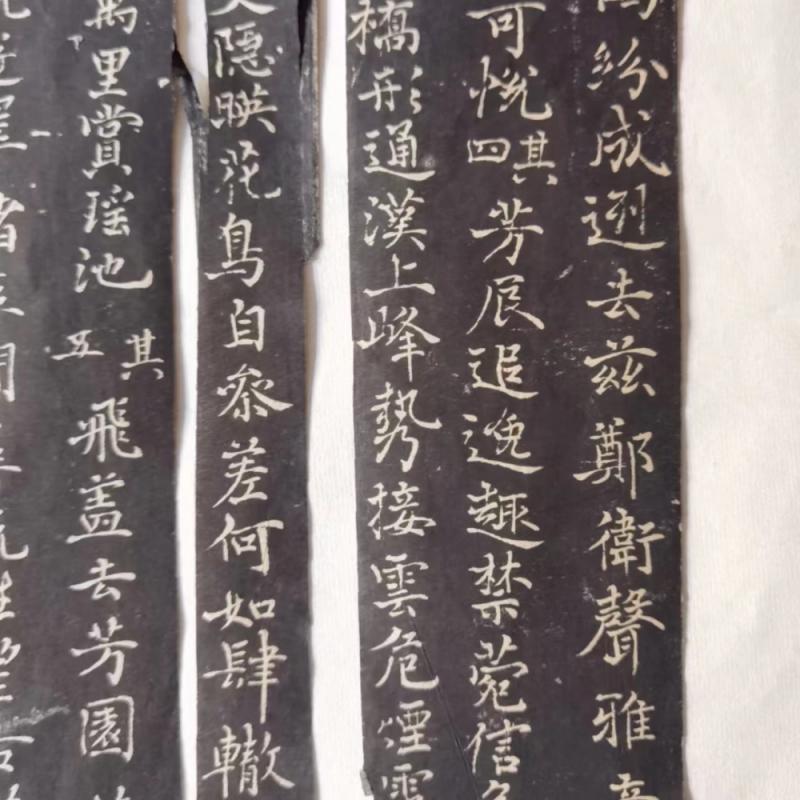 紛成迾去茲鄭衛聲雅
可悅其四芳辰追逸趣禁菀信
橋形通漢上峰勢接雲危煙
隱映花鳥自參差何如肆轍
萬里賞瑤池其五飛盖去芳園